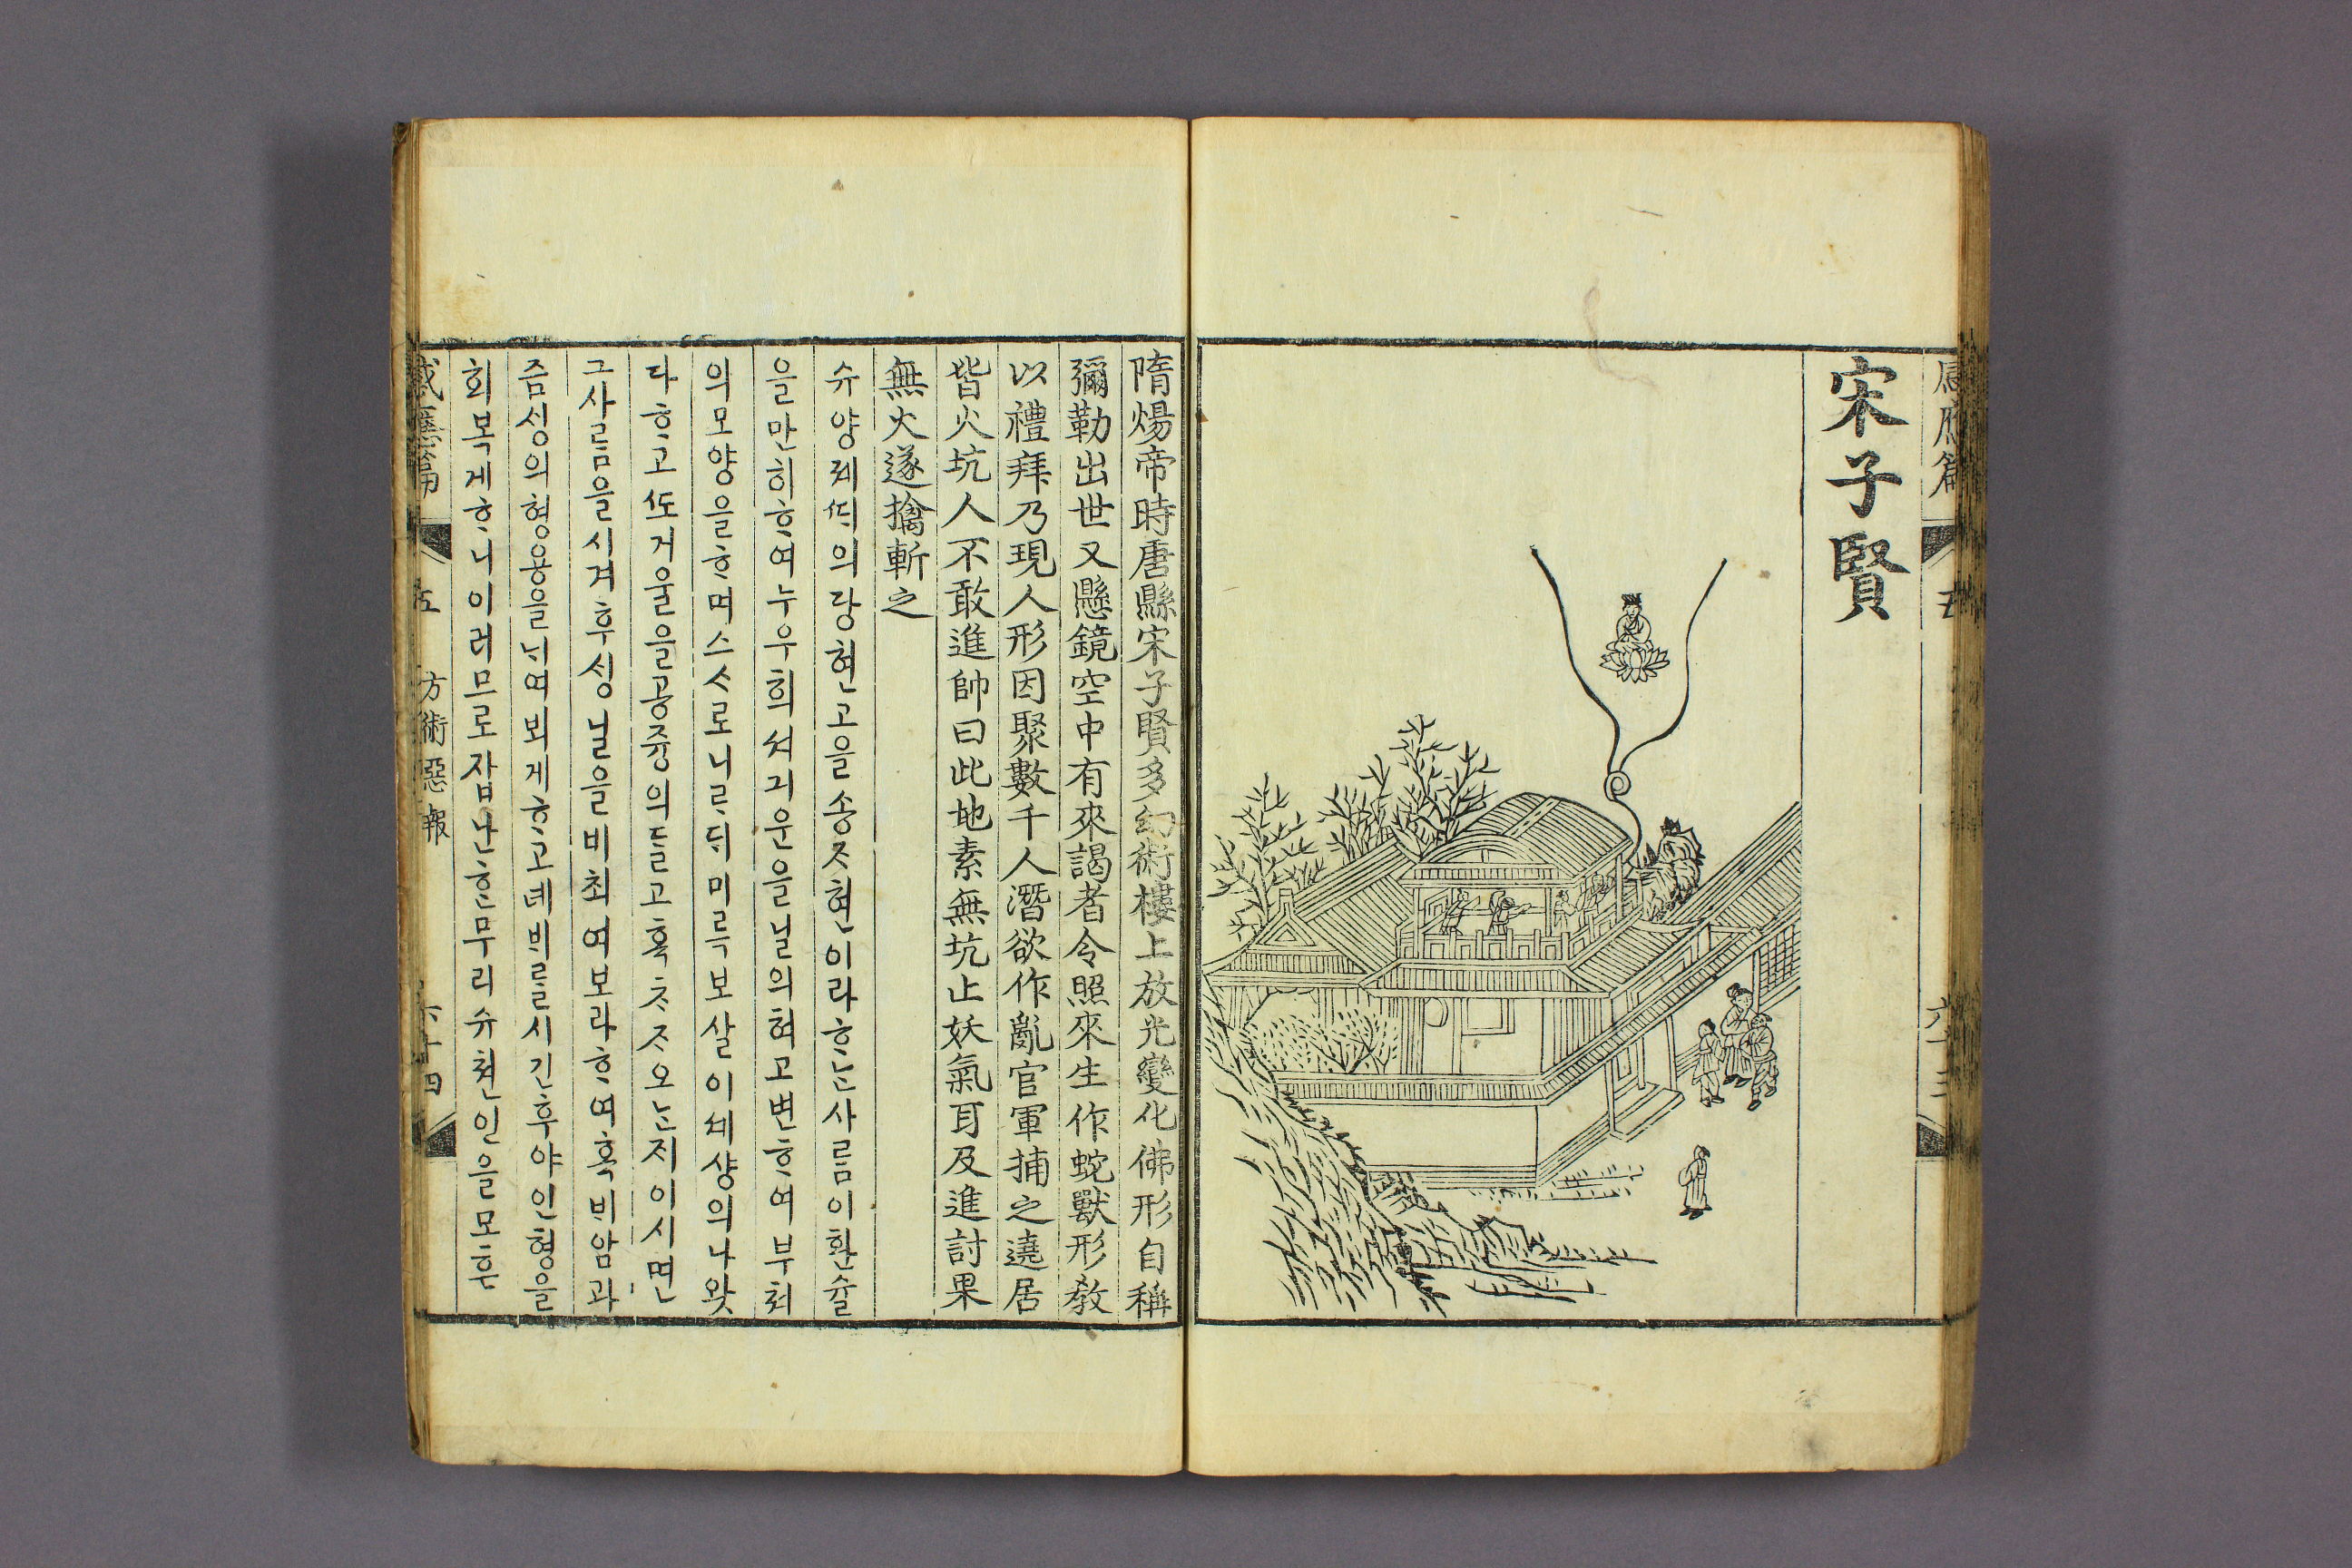 宋子賢
隋煬帝時唐縣宋子賢多幻術樓上放光變化佛形自稱
彌勒出世又懸鏡空中有來謁者令照來生作蛇獸形敎
以禮拜乃現人形因聚數千人潛欲作亂官軍捕之遶居
皆火坑人不敢進帥曰此地素無坑止妖氣耳及進討果
無火遂擒斬之
슈양뎨ᄯᅵ의당현고을송ᄌᆞ현이라ᄒᆞᆫ사ᄅᆞᆷ이환슐
을만히ᄒᆞ여누우희셔긔운을ᄂᆡᆯ의혀고변ᄒᆞ여부쳐
의모양을ᄒᆞ며스ᄉᆞ로니ᄅᆞᄃᆡ미륵보살이셰샹의나왓
다ᄒᆞ고ᄯᅩ거울을공즁의ᄃᆞᆯ고혹ᄎᆞᄌᆞ오ᄂᆞᆫ지이시면
그사ᄅᆞᆷ을시겨후ᄉᆡᆼ닐을비최여보라ᄒᆞ여혹ᄇᆡ암과
즘ᄉᆡᆼ의형용을ᄂᆡ여뵈게ᄒᆞ고녜ᄇᆡᄅᆞᆯ시긴후야인형을
회복게ᄒᆞ니이러므로잡난ᄒᆞᆫ무리슈쳔인을모호
感應篇
五
方術惡報
六十四